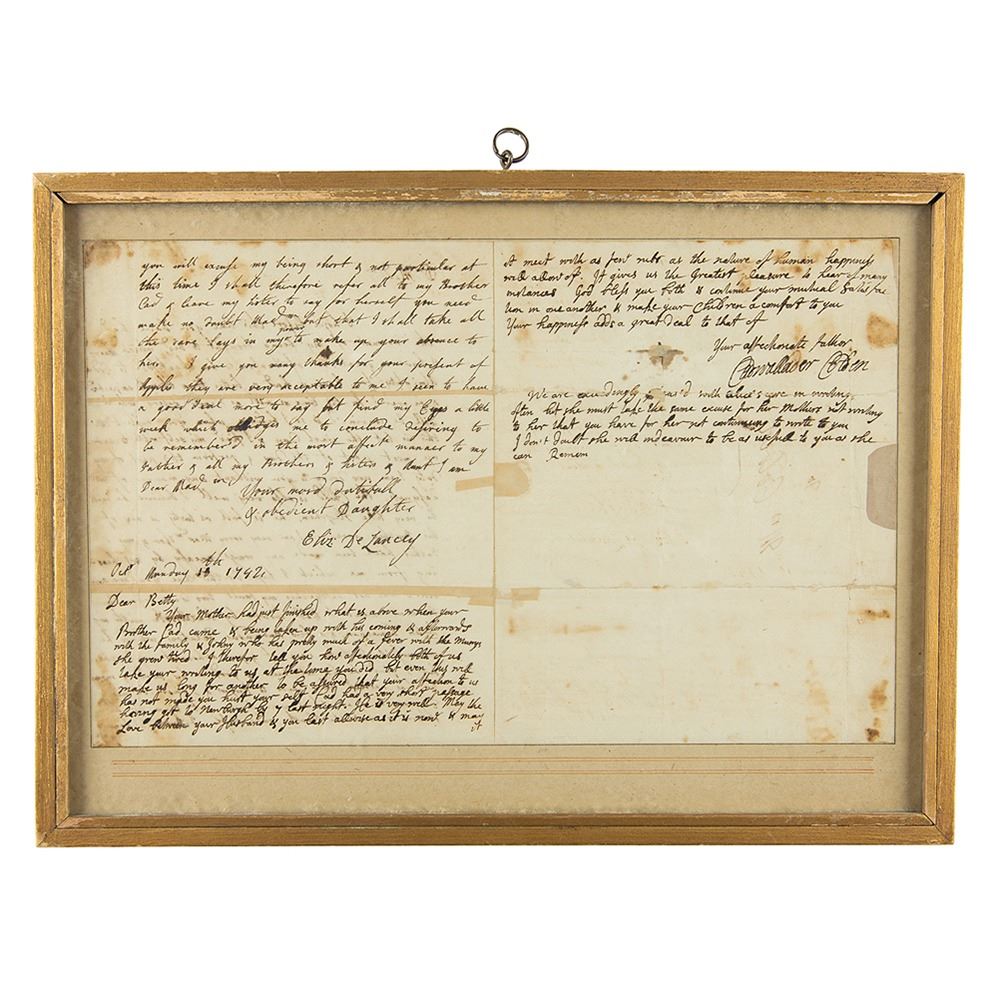 you will excuse my being short & not particular at
this time I shall therefore refer all to my Brother
Cad & leave my sister to say for herself you need
make no doubt Mad but that I shall take all
the care lays in my power to make up your absence to
her. I give you many thanks for your present of
Apples they are very acceptable to me I seem to have
a good deal more to say but find my Eyes a little
weak which me to conclude desiring to
be remembered in the most affte manner to my
Father & all my Brothers & Sisters & Aunt I am
Dear Mad
Your most dutifull
& obedient Daughter
Eliz DeLancey
Octr Monday th 1742
Dear Betty
Your Mother had just finished what is above when your
Brother Cad came & being taken up with his coming & afterwards
with the family & Johny who has pretty much of a fever with the Mumps
she grew tired I therefor tell you how affectionately both of us
take your writing to us at the time you did but even this will
make us long for another to be assured that your affection to us
has not made you hurt your self Cad had a very short passage
having got to Newburgh by 7 last night. He is very well. May the
Love between your Husband & you last allwise as it is now & may
it
it meet with as few rubs as the nature of human happiness
will allow of. It gives us the Greatest pleasure to hear of many
instances God bless you both & continue your mutual Satisfac
tion in one another & make your Children a comfort to you
Your happiness adds a great deal to that of
Your affectionate father
Cadwallader Colden
We are exceedingly with Alice's care in writing
often but she must take the same excuse for her Mothers not writing
to her that you have for her not continuing to write to you
I don't doubt she will endeavour to be as usefull to you as she
can